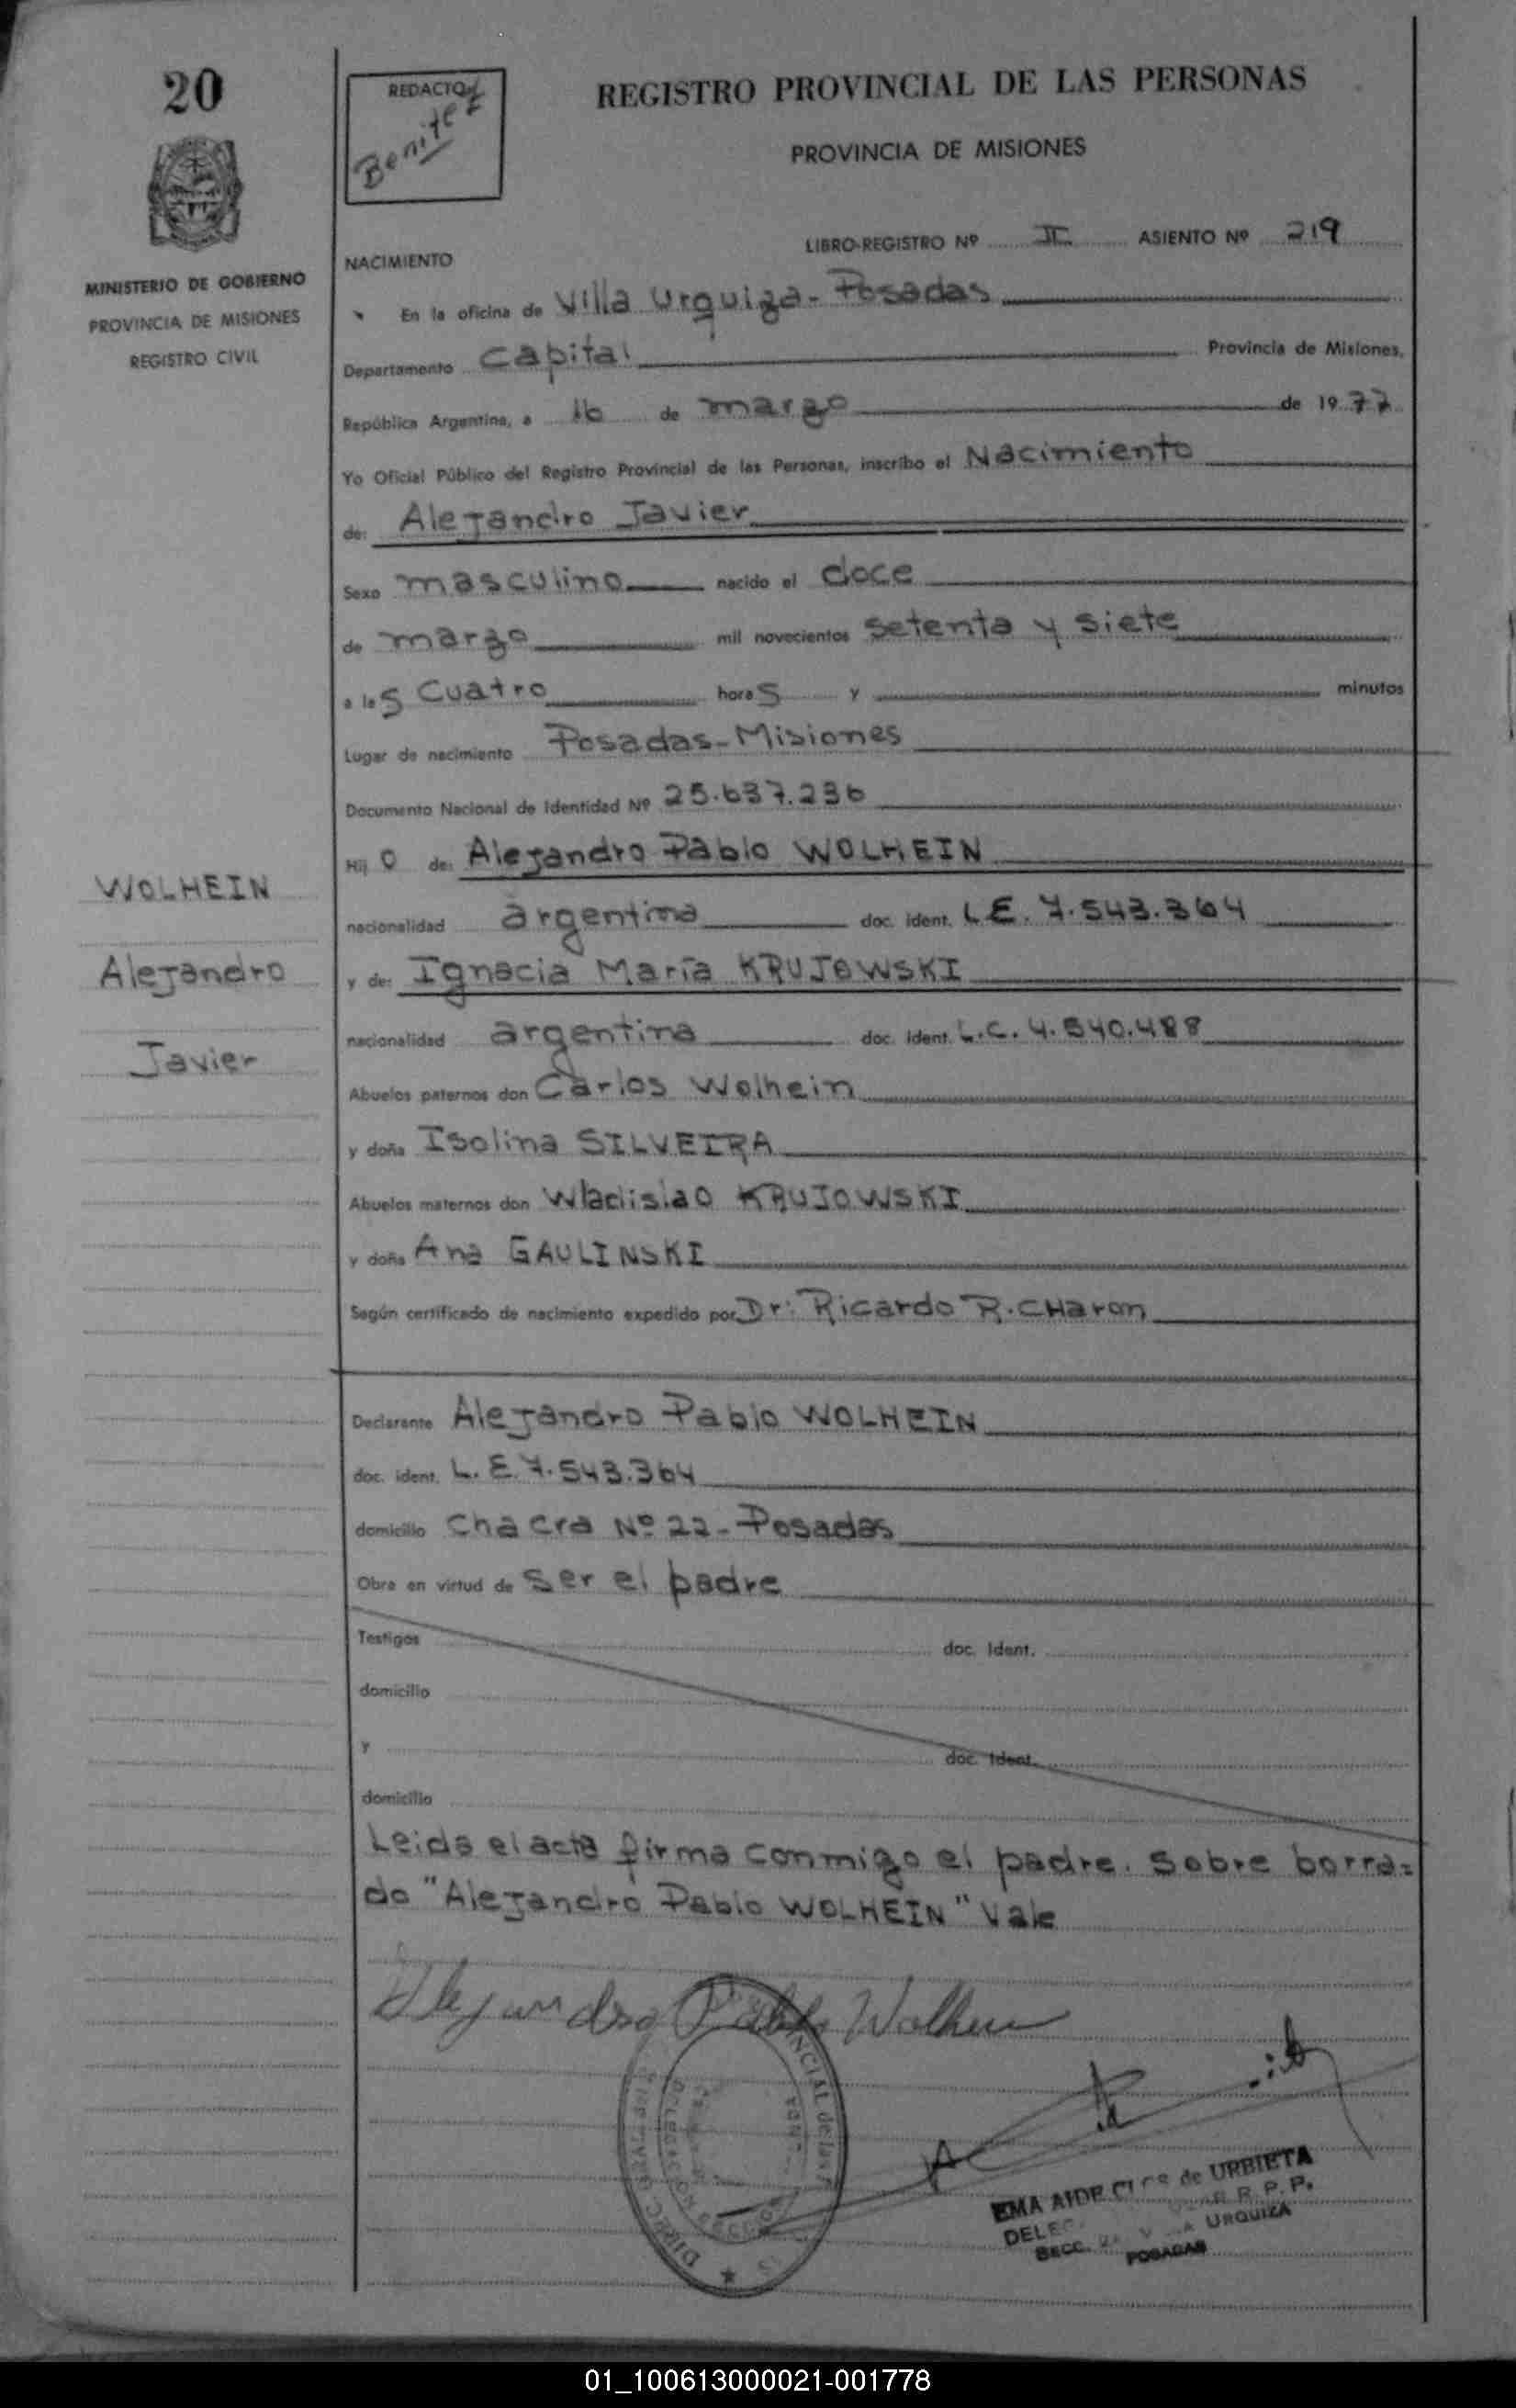 20
REDACTOR
Benitez
REGISTRO PROVINCIAL DE LAS PERSONAS
PROVINCIA DE MISIONES
MINISTERIO DE GOBIERNO
PROVINCIA DE MISIONES
REGISTRO CIVIL
LIBRO-REGISTRO Nº II ASIENTO Nº 219
NACIMIENTO
En la oficina de Villa Urquiza - Posadas
Departamento Capital Provincia de Misiones,
República Argentina, a 16 de marzo de 1977
Yo Oficial Público del Registro Provincial de las Personas, inscribo el Nacimiento
de: Alejandro Javier
Sexo masculino nacido el doce
de marzo mil novecientos setenta y siete
a las cuatro horas y minutos
Lugar de nacimiento Posadas-Misiones
Documento Nacional de Identidad Nº 25.637.236
Hijo de: Alejandro Pablo WOLHEIN
nacionalidad argentina doc. ident. L.E. 7.543.364
y de: Ignacia María KRUJOWSKI
nacionalidad argentina doc. ident. L.C. 4.540.488
Abuelos paternos don Carlos Wolhein
y doña Isolina SILVEIRA
Abuelos maternos don Wladislao KRUJOWSKI
y doña Ana GAULINSKI
Según certificado de nacimiento expedido por Dr: Ricardo R. CHaron
WOLHEIN
Alejandro
Javier
Declarante Alejandro Pablo WOLHEIN
doc. ident. L.E. 7.543.364
domicilio Chacra Nº 22 - Posadas
Obra en virtud de ser el padre
Testigos doc. Ident.
domicilio
y doc. Ident.
domicilio
Leida el acta firma conmigo el padre. Sobre borra=
do "Alejandro Pablo WOLHEIN" Vale
Alejandro Pablo Wolhein
EMA AIDE de URBIETA
R. P. P.
SECC. URQUIZA
POSADAS
01_100613000021-001778